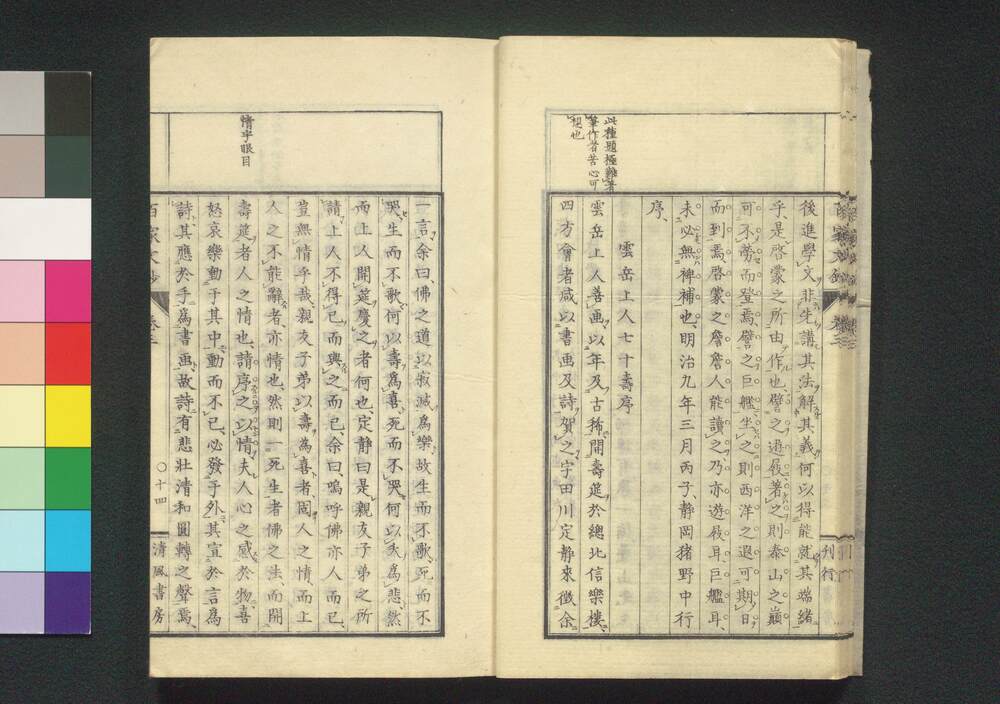 此種題極難著
筆作者苦心可
想也
後進學文非先講其法解其義何以得能就其端緒
乎、是啓蒙之所由作也、譬之遊屐著之則泰山之巔
可不勞而登焉譬之巨艦坐之則西洋之遐可期日
而到焉啓蒙之詹詹人能讀之乃亦遊屐耳巨艦耳、
未必無裨補也、明治九年三月丙子、静岡猪野中行
序、
雲岳上人七十壽序
雲岳上人善画以年及古稀開壽筵於總北信樂樓、
四方會者咸以書画及詩賀之字田川定静來徴余
刊行
情字眼目
一言余曰、佛之道以寂滅爲樂故生而不歌、死而不
哭、生而不歌何以壽爲喜、死而不哭何以夭爲悲、然
而上人開筵慶之者何也、定静曰是親友子弟之所
請、上人不得已而與之而已、余曰、嗚呼佛亦人而已、
豈無情乎哉、親友子弟以壽爲喜者、固人之情、而上
人之不能辭者、亦情也、然則一死生者佛之法、而開
壽筵者人之情也、請序之以情夫人心之感於物、喜
怒哀樂動于其中、動而不已、必發乎外其宣於言爲
詩、其應於手爲書画、故詩有悲壯清和圓轉之聲焉、
百家文鈔
〇十四
清風書房